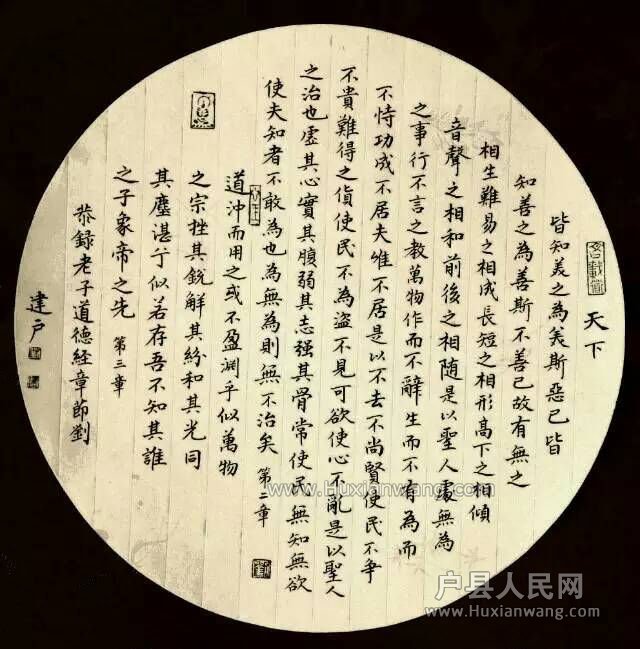 天下
皆知美之為美斯惡已皆
知善之為善斯不善已故有無之
相生難易之相成長短之相形高下之相傾
音聲之相和前後之相随是以聖人處無為
之事行不言之教萬物作而不辭生而不有為而
不恃功成不居夫唯不居是以不去不尚賢使民不争
不貴難得之貨使民不為盜不見可欲使心不亂是以聖人
之治也虚其心實其腹弱其志强其骨常使民無知無欲
使夫知者不敢為也為無為則無不治矣 第二章
道沖而用之或不盈渊乎似萬物
之宗挫其銳解其紛和其光同
其塵湛兮似若存吾不知其誰
之子象帝之先 第三章
恭錄老子道德経章節劉
建户
www.Huxianwang.com
户县人民网
www.Huxianwang.com